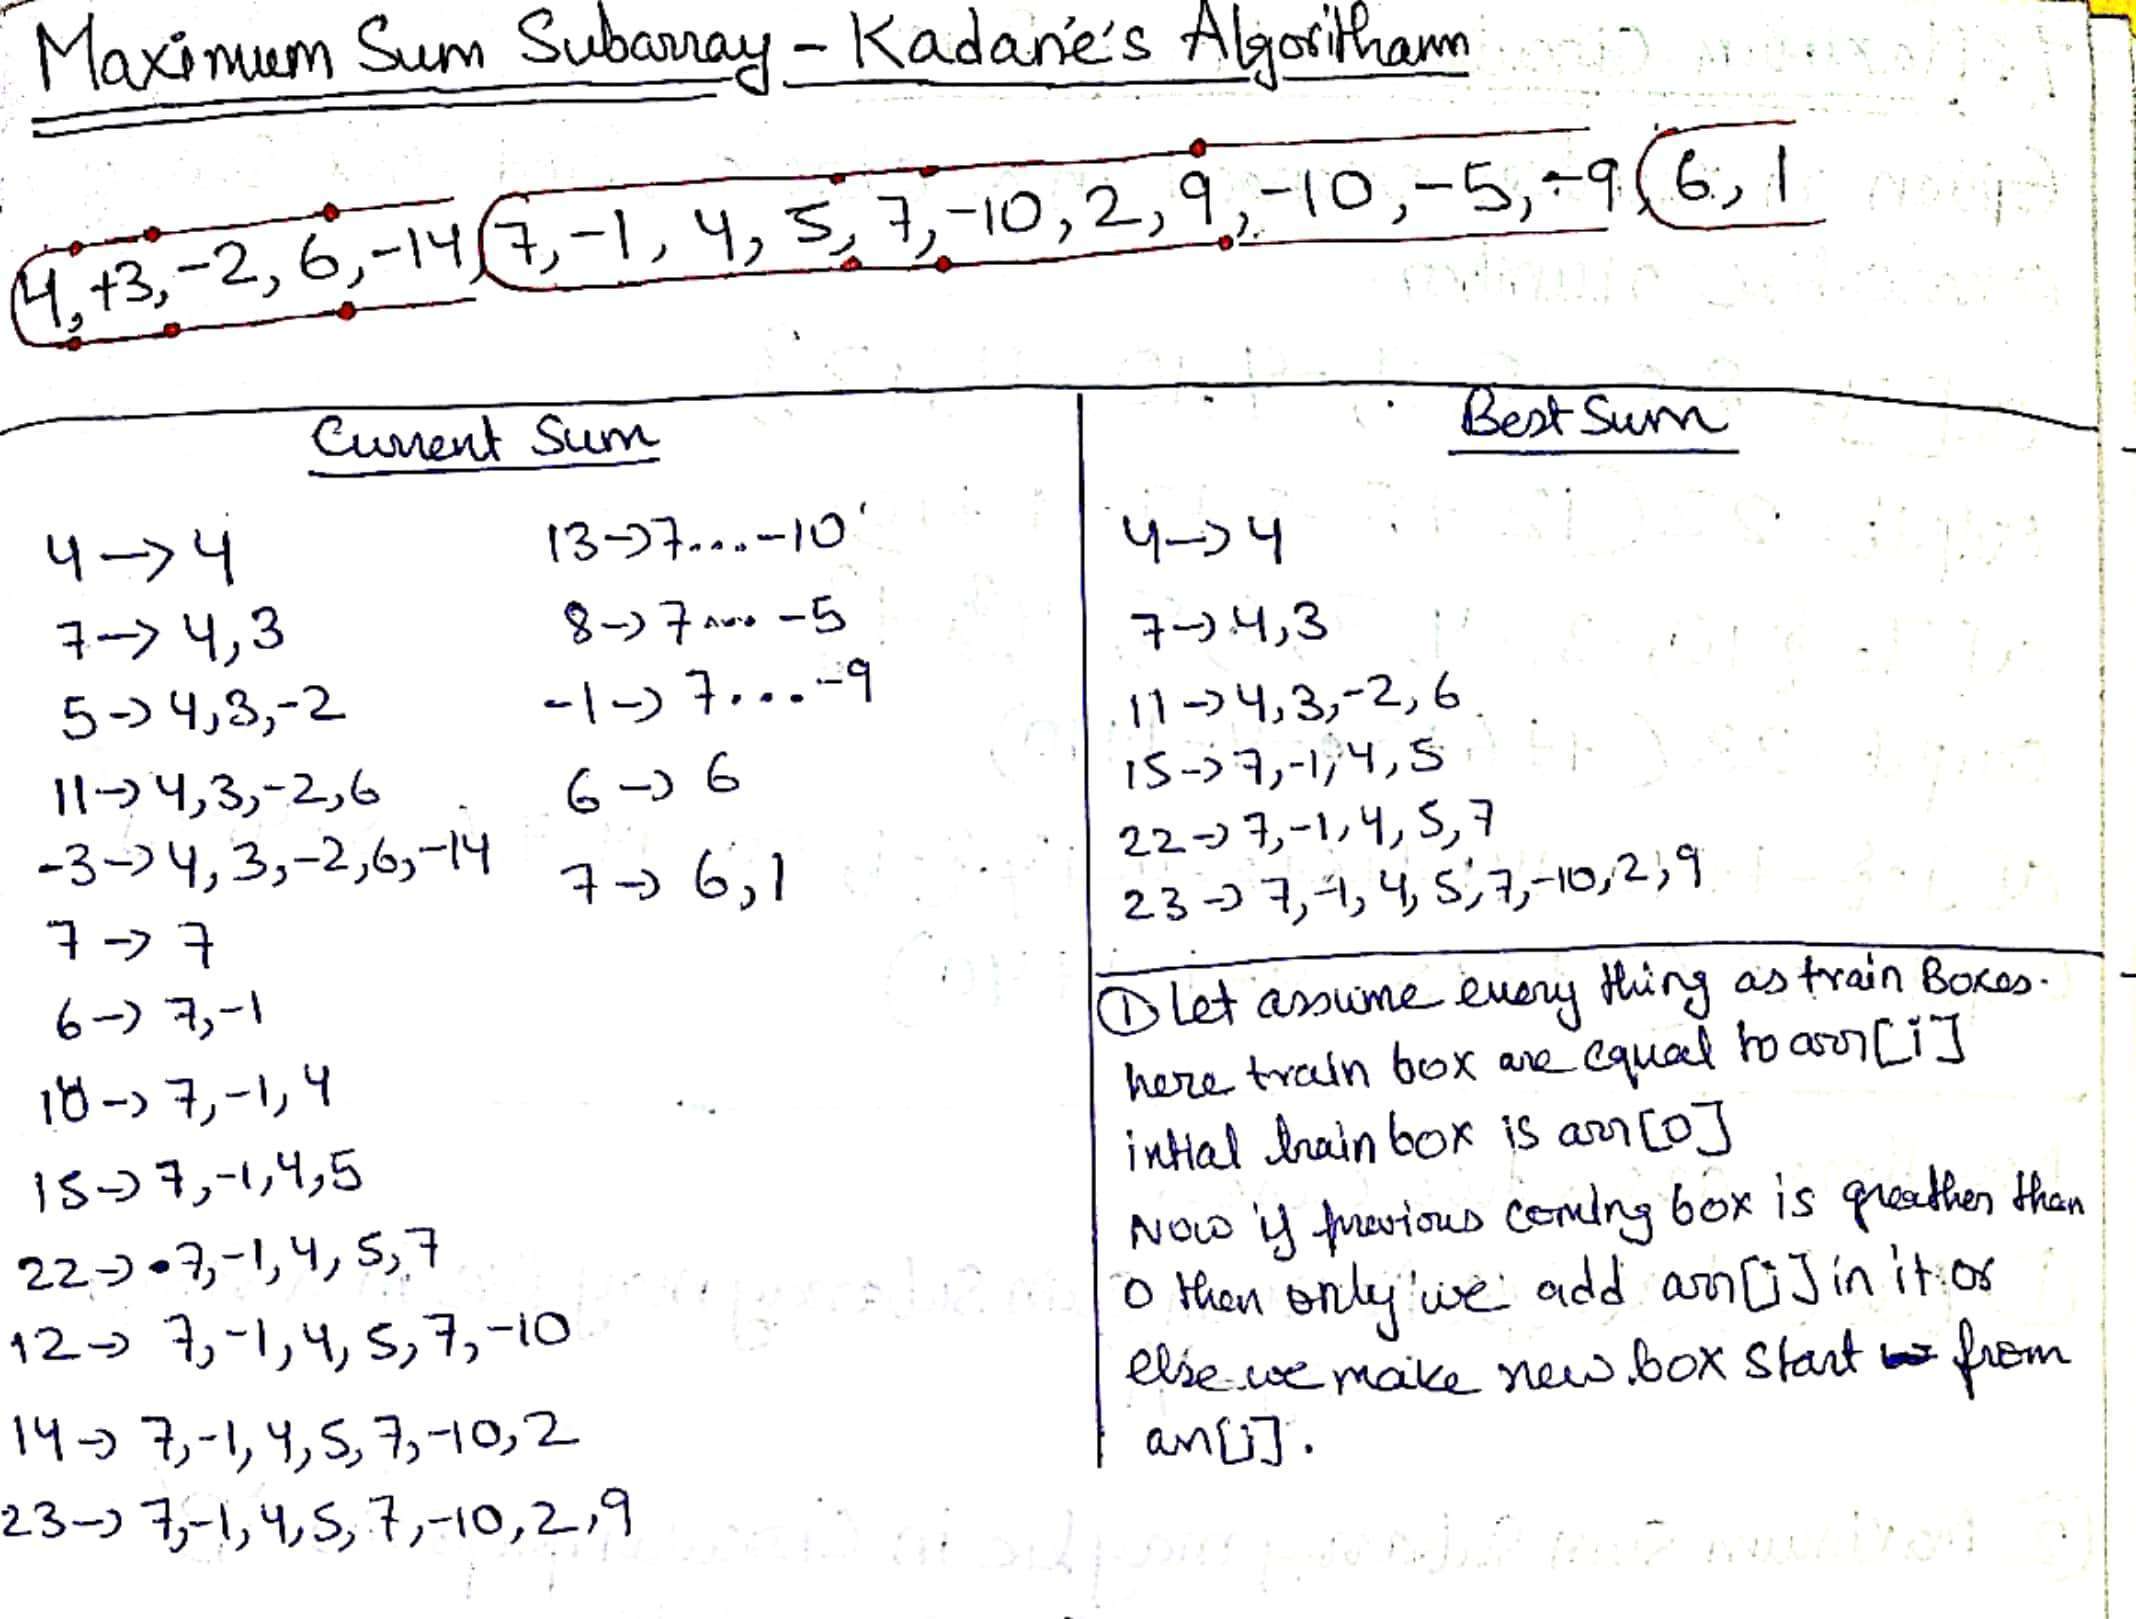 Maximum Sum Subarray - Kadane's Algorithamm
4, +3, -2, 6, -14, 7, -1, 4, 5, 7, -10, 2, 9, -10, -5, -9, 6, 1
Current Sum
4 → 4
7 → 4,3
5 → 4,3,-2
11 → 4,3,-2,6
-3 → 4,3,-2,6,-14
7 → 7
6 → 7,-1
10 → 7,-1,4
15 → 7,-1,4,5
22 → 7,-1,4,5,7
12 → 7,-1,4,5,7,-10
14 → 7,-1,4,5,7,-10,2
23 → 7,-1,4,5,7,-10,2,9
13 → 7....-10
8 → 7.... -5
-1 → 7....-9
6 → 6
7 → 6,1
Best Sum
4 → 4
7 → 4,3
11 → 4,3,-2,6
15 → 7,-1,4,5
22 → 7,-1,4,5,7
23 → 7,-1,4,5,7,-10,2,9
① Let assume every thing as train Boxes.
here train box are equal to arr[i]
intial train box is arr[0]
Now if previous coming box is greather than
0 then only we add arr[i] in it or
else we make new box start from
arr[i].